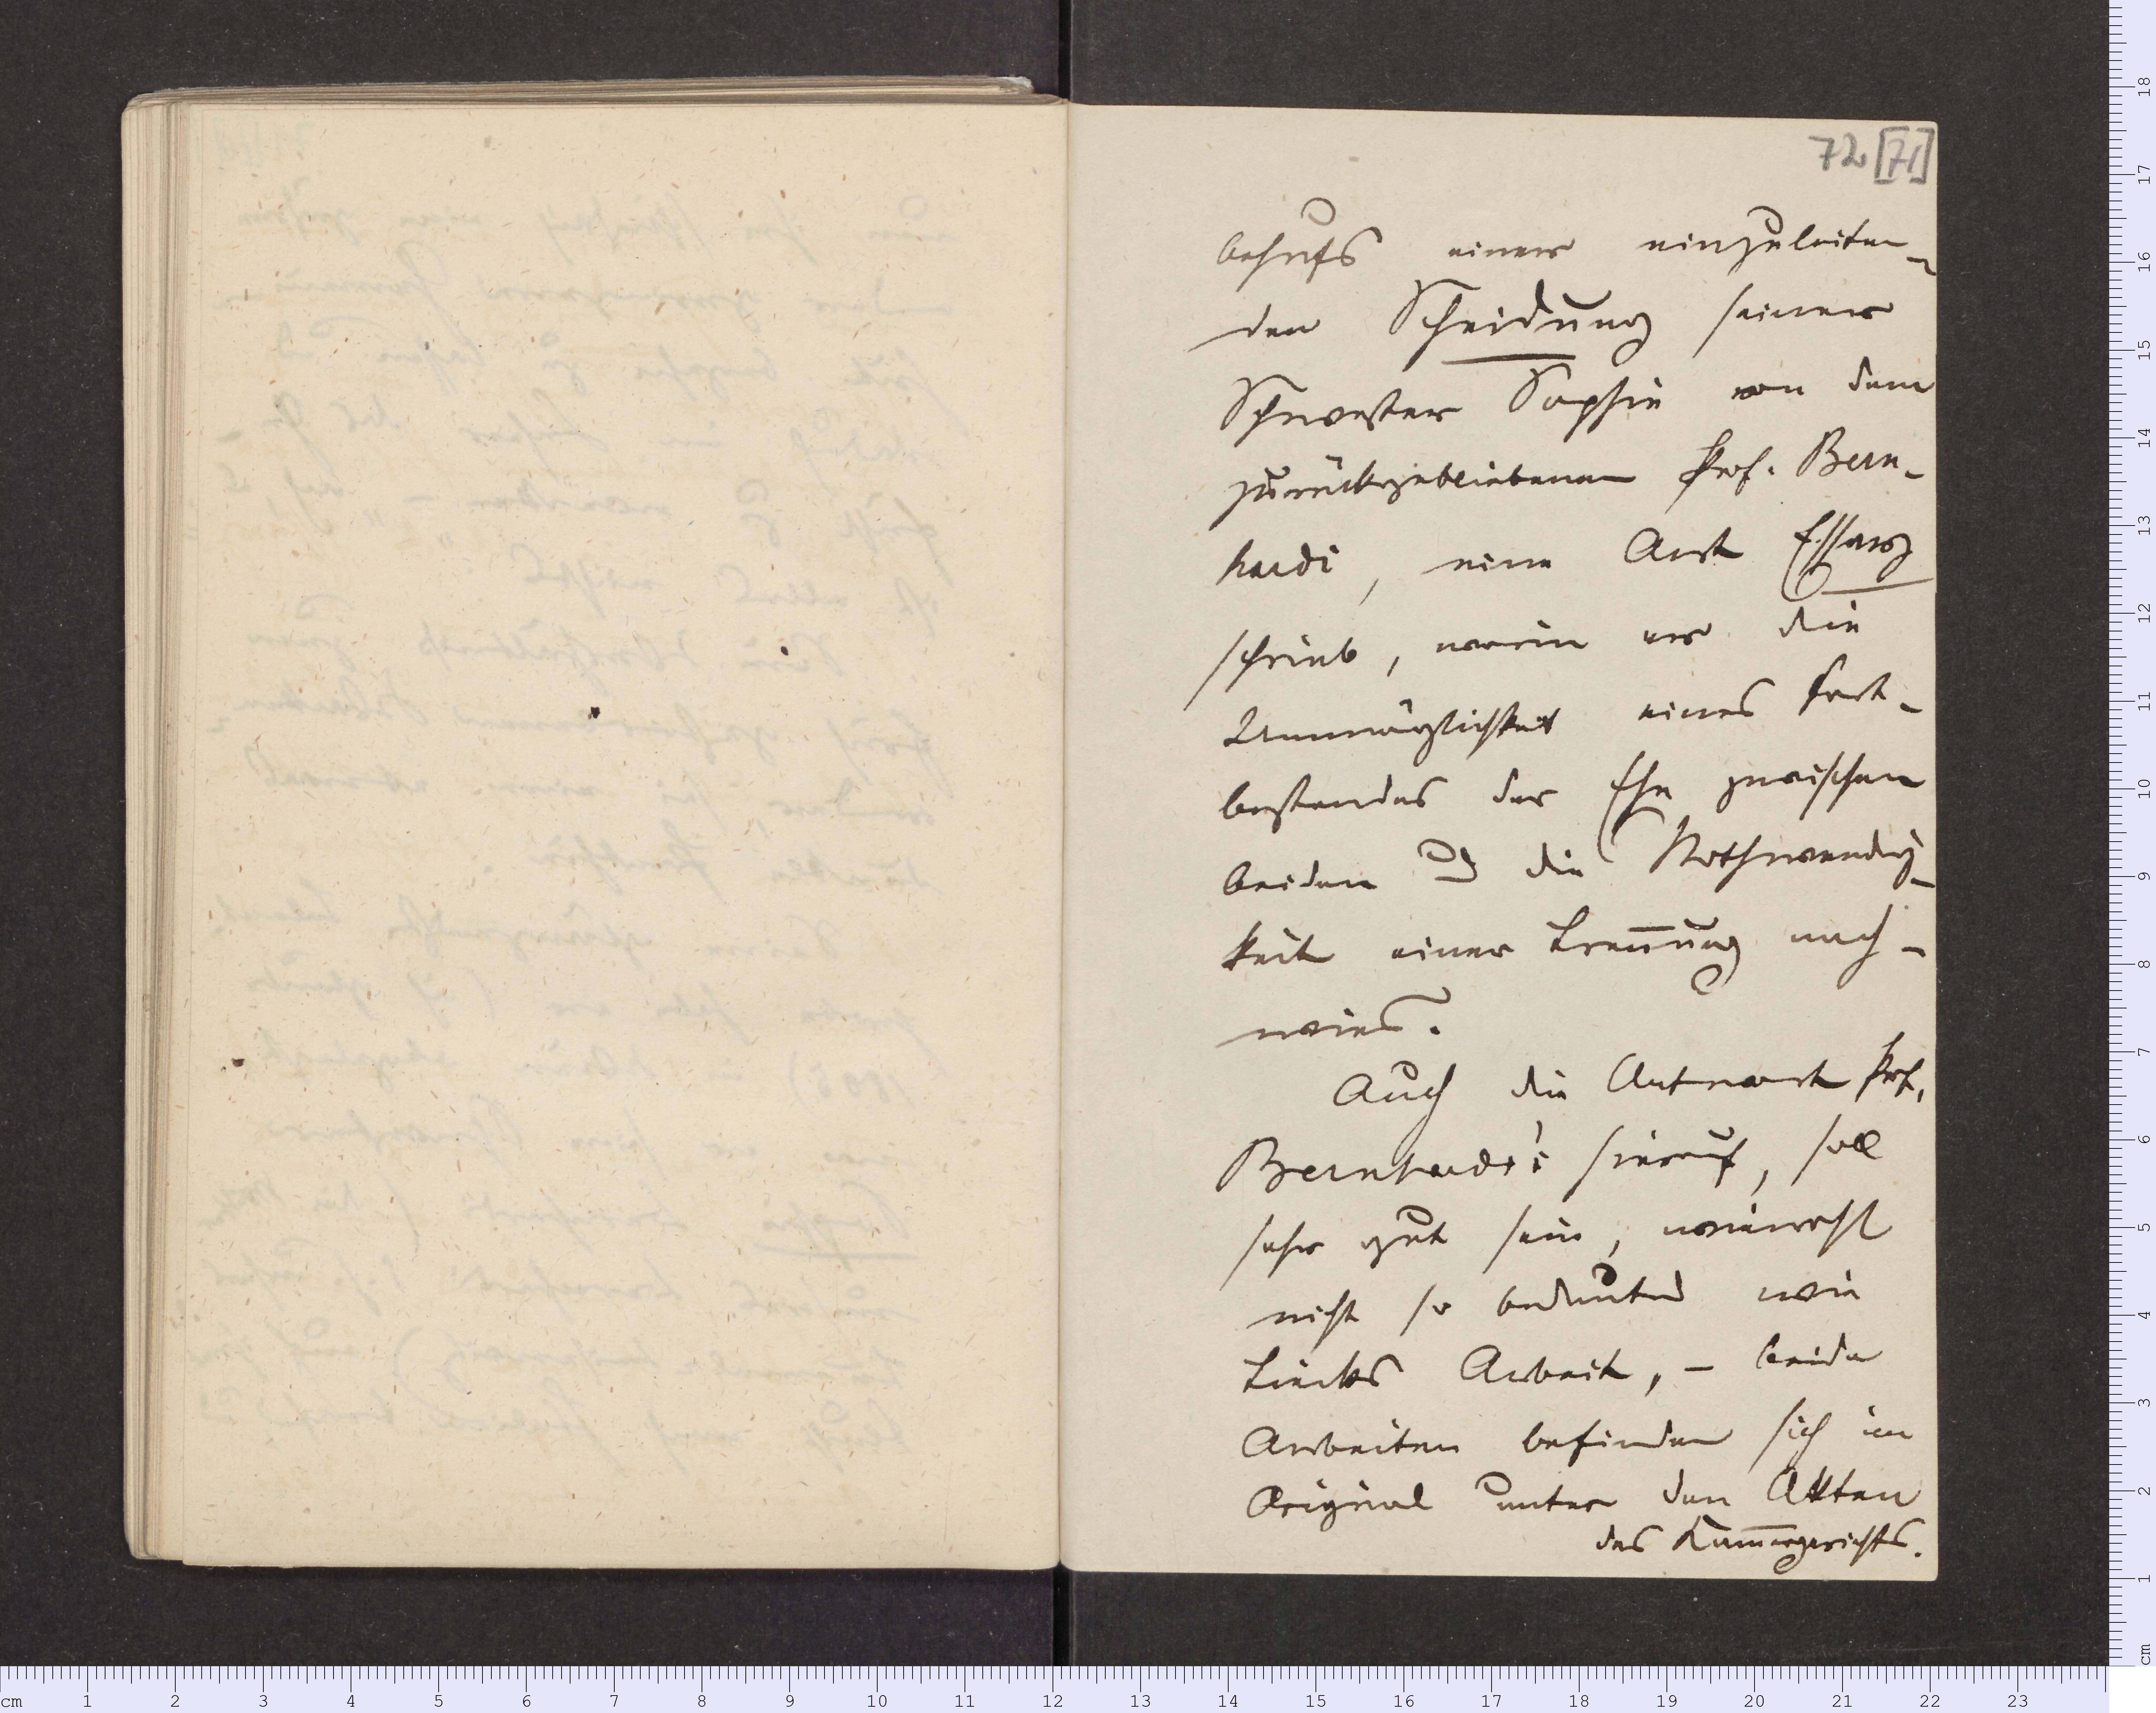 72 [71]
behufs einer einzuleiten-
den Scheidung seiner
Schwester Sophie von dem
zurückgebliebenen Prof. Bern-
hardi, eine Art Essay
schrieb, worin er die
Unmöglichkeit eines Fort-
bestandes der Ehe zwischen
beiden u die Nothwendig-
keit einer Treñung nach-
wies.
Auch die Antwort Prof.
Bernhardi's hierauf, soll
sehr gut sein, wiewohl
nicht so bedeutend wie
Tiecks Arbeit, – beide
Arbeiten befinden sich im
Original unter den Akten
des Kam̄ergerichts.